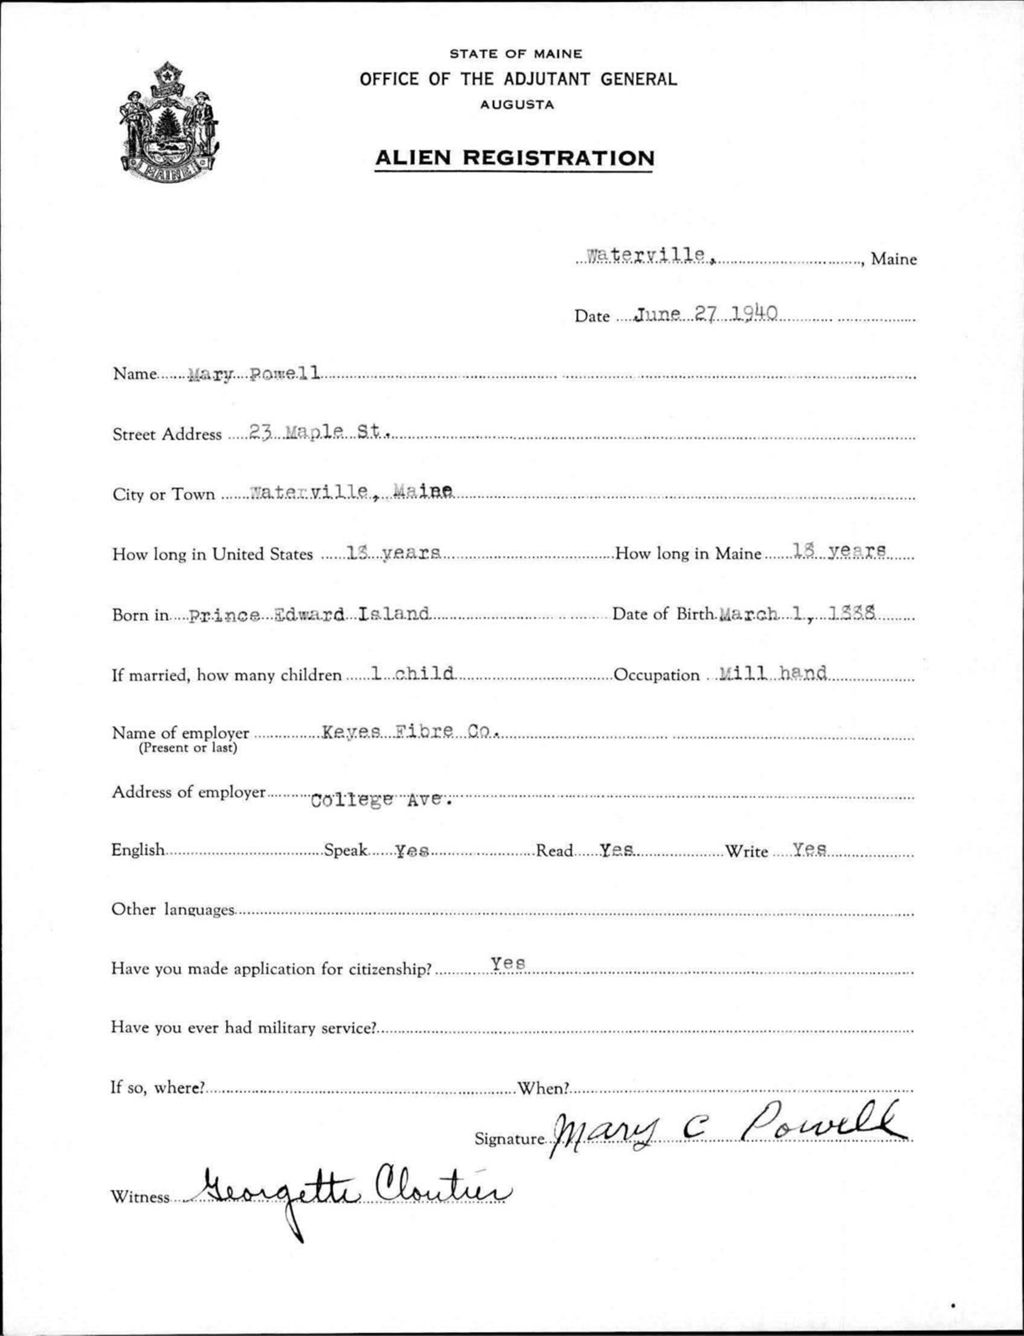 STATE OF MAINE
OFFICE OF THE ADJUTANT GENERAL
AUGUSTA
ALIEN REGISTRATION
MAINE
Waterville, , Maine
Date June 27 1940
Name Mary Powell
Street Address 23 Maple St.
City or Town Waterville, Maine
How long in United States 18 years How long in Maine 18 years
Born in Prince Edward Island Date of Birth March 1, 1888
If married, how many children 1 child Occupation Mill hand
Name of employer Keyes Fibre Co.
(Present or last)
Address of employer College Ave.
English Speak Yes Read Yes Write Yes
Other languages
Have you made application for citizenship? Yes
Have you ever had military service?
If so, where? When?
Signature Mary C Powell
Witness Georgette Cloutier